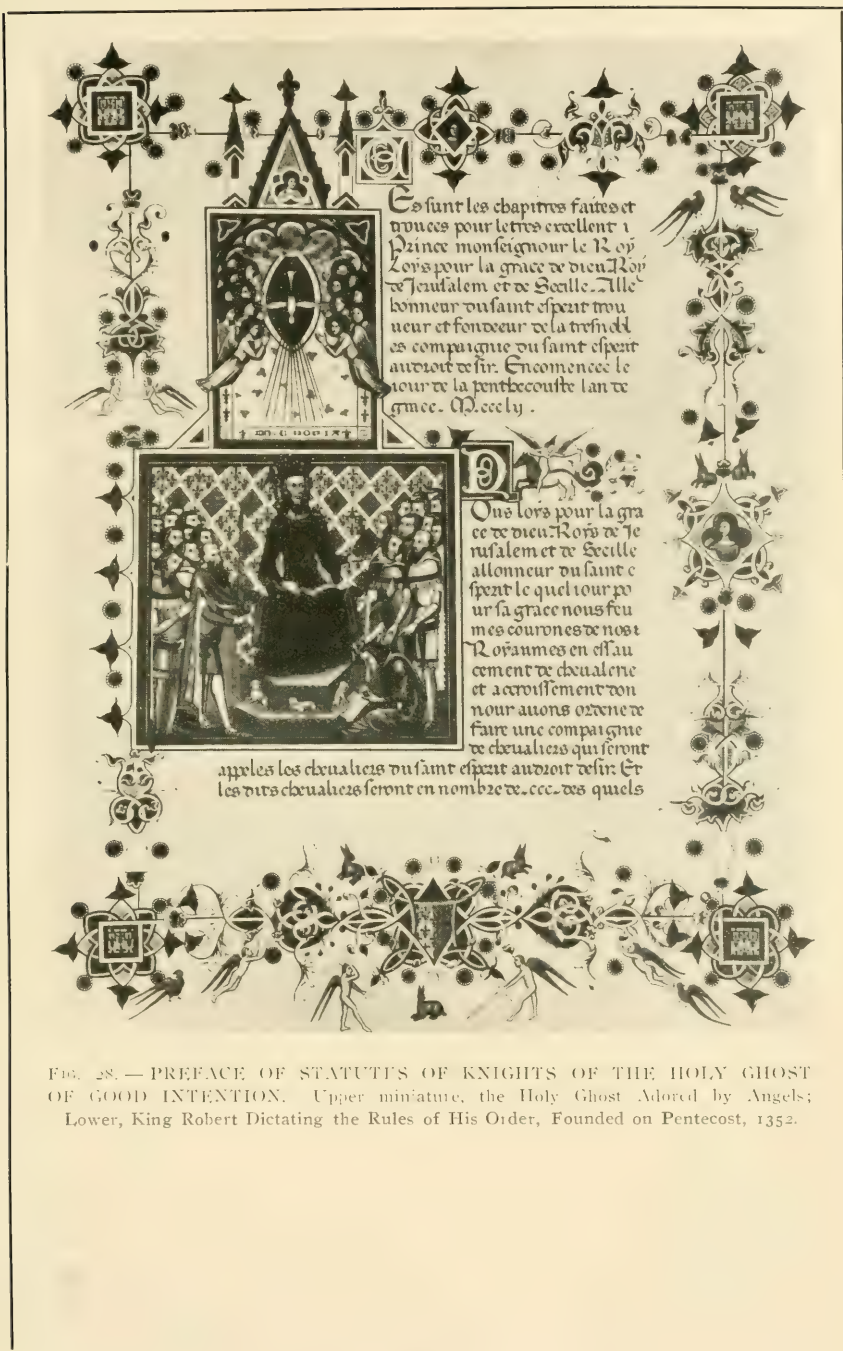 Es sunt les chapitres faites et
trouees pour le tres excellent i
Prince monseignour le Roy
Loys pour la grace de dieu Roy
de Jerusalem et de Secille. Alle
honneur du saint esperit trou
ueur et fondeeur de la tresnobl
es compaignie du saint esperit
au droit desir. Encomencee le
iour de la penthecouste lan de
grace. M.ccc.lij.
Ous loys pour la gra
ce de dieu. Roys de Je
rusalem et de Secille
allonneur du saint e
sperit le quel iour po
ur sa grace nous feu
mes courones de nost
Royaumes en essau
cement de cheualerie
et accroissement don
nour auons ordene de
faire une compaignie
de cheualiers qui seront
appeles les cheualiers du saint esperit au droit desir. Et
les dits cheualiers seront en nombre de .ccc. des quiels
FIG. 28. — PREFACE OF STATUTES OF KNIGHTS OF THE HOLY GHOST
OF GOOD INTENTION. Upper miniature, the Holy Ghost Adored by Angels;
Lower, King Robert Dictating the Rules of His Order, Founded on Pentecost, 1352.